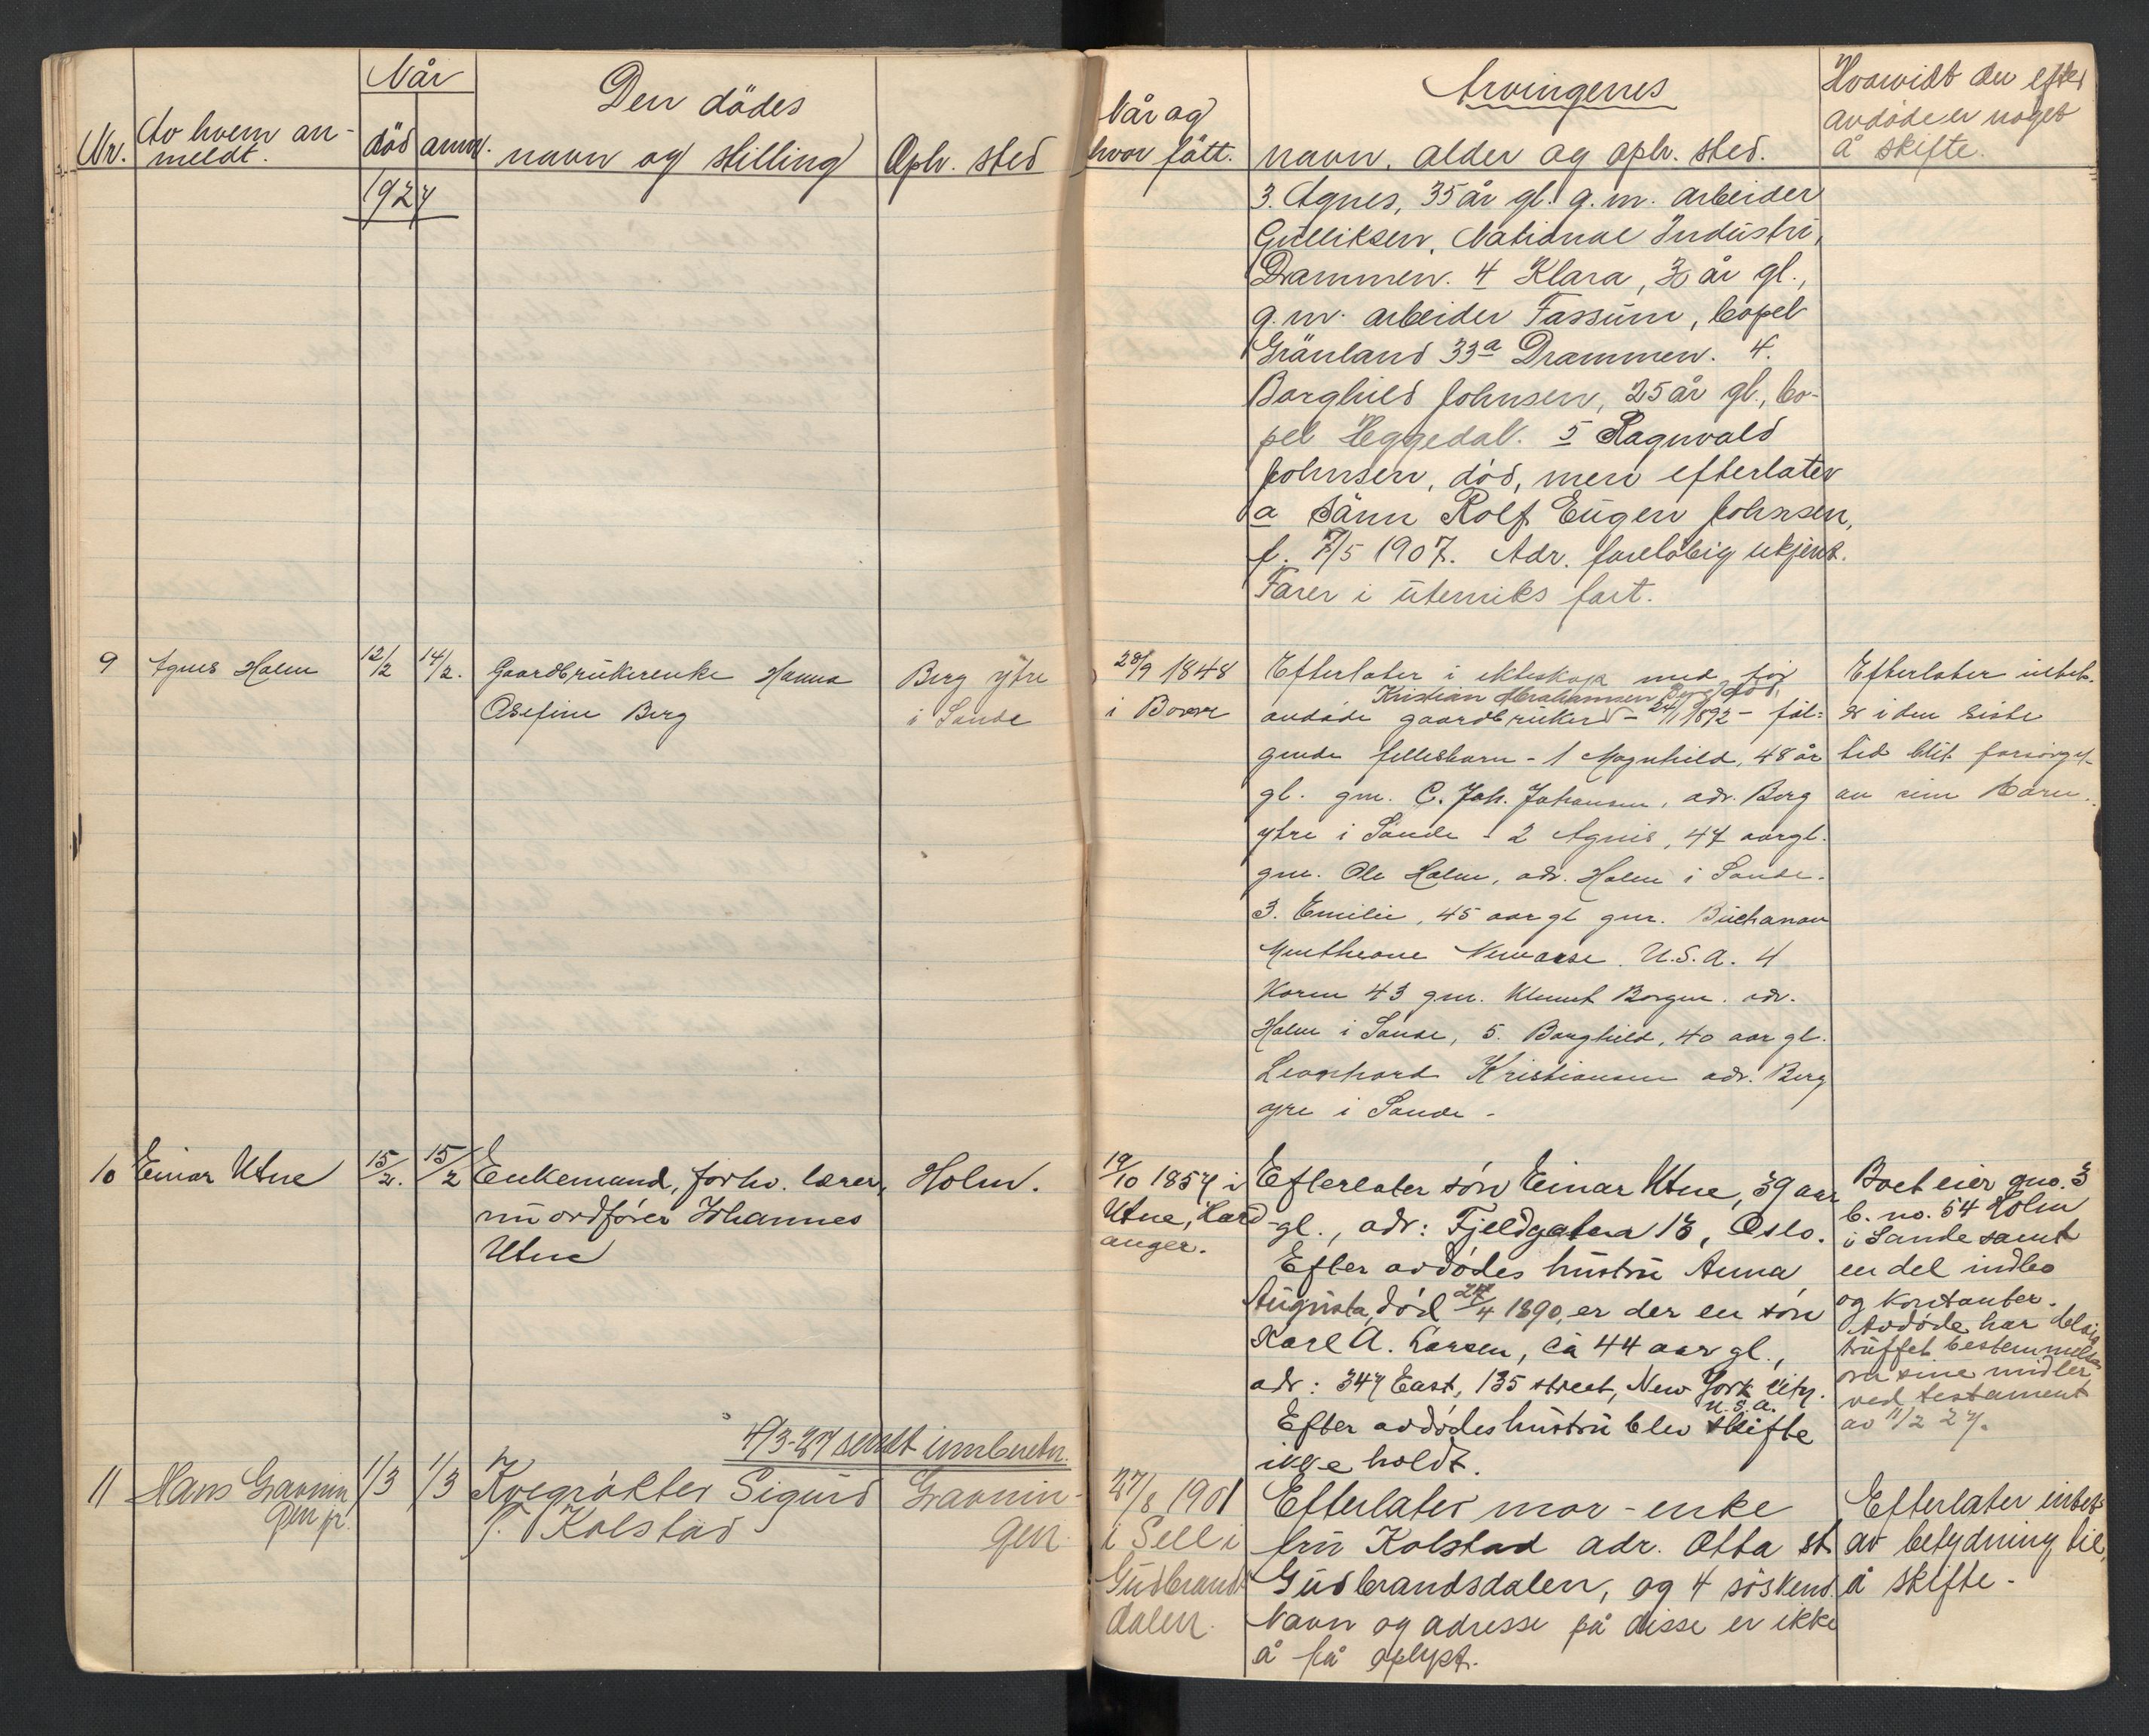 Nr.
Av hvem an-
meldt.
Når
død
anm.
Den dödes
navn og stilling
Oph. sted
Når og
hvor fött.
Arvingenes
navn, alder og oph. sted.
Hvorvidt der efter
avdöde er noget
å skifte.
1927
3. Agnes, 35 år gl. g.m. arbeider
Gulliksen, National Industri,
Drammen. 4 Klara, 30 år gl.,
g.m. arbeider Fassum, bopel
Grönland 33a Drammen. 4.
Borghild Johnsen, 25 år gl., bo-
pel Heggedal. 5 Ragnvald
Johnsen, död, men efterlater
a Sönn Rolf Eugen Johnsen,
f. 7/5 1907. Adr. forelöbig ukjent.
Farer i uteniks fart.
9
Agnes Holm
12/2
14/2.
Gaardbrukerenke Hanna
Osefine Berg
Berg ytre
i Sande
28/9 1848
i Borre
Efterlater i ekteskap med för
Kristian Abrahamsen Berg, död,
avdöde gaardbruker - 24/1 1892 - föl-
gende fellesbarn - 1 Magnhild, 48 år
gl. gm. C. Joh. Johansen, adr. Berg
ytre i Sande - 2 Agnes, 47 aar gl.
gm. Ole Holm, adr. Holm i Sande.
3. Emilie, 45 aar gl gm. Buchanan
U.S.A. 4
Karen 43 gm. Borgen. adr.
Holm i Sande, 5. Borghild, 40 aar gl.
Leonhard Kristiansen adr. Berg
ytre i Sande -
Efterlater intet.
er i den siste
tid blit forsörget
av sine barn.
10
Einar Utne
15/2.
15/2
Enkemand, forhv. lærer,
nu ordförer Johannes
Utne
Holm.
19/10 1857 i
Utne, Hard-
anger.
Efterlater sön Einar Utne, 39 aar
gl., adr: Fjeldgaten 13, Oslo.
Efter avdödes hustru Anna
Augusta, död 27/4 1890, er der en sön
Karl A. Larsen, ca 44 aar gl.,
adr: 347 East, 135 street, New York City.
U.S.A.
Efter avdödes hustru blev skifte
ikke holdt.
Boet eier gno. 3
b. no. 54 Holm
i Sande samt
en del indbo
og kontanter.
Avdöde har delvis
truffet bestemmelser
over sine midler
ved testament
av 11/2 27.
4/3-27 sendt innberetn.
11
Hans Gravnin
gen jr.
1/3
1/3
Kvegrökter Sigurd
P. Kolstad
Gravnin-
gen
27/8 1901
i Sell i
Gudbrands
dalen.
Efterlater mor - enke
fru Kolstad adr. Otta st.
Gudbrandsdalen, og 4 söskend.
Navn og adresse på disse er ikke
å få oplyst.
Efterlater intet
av betydning til
å skifte -